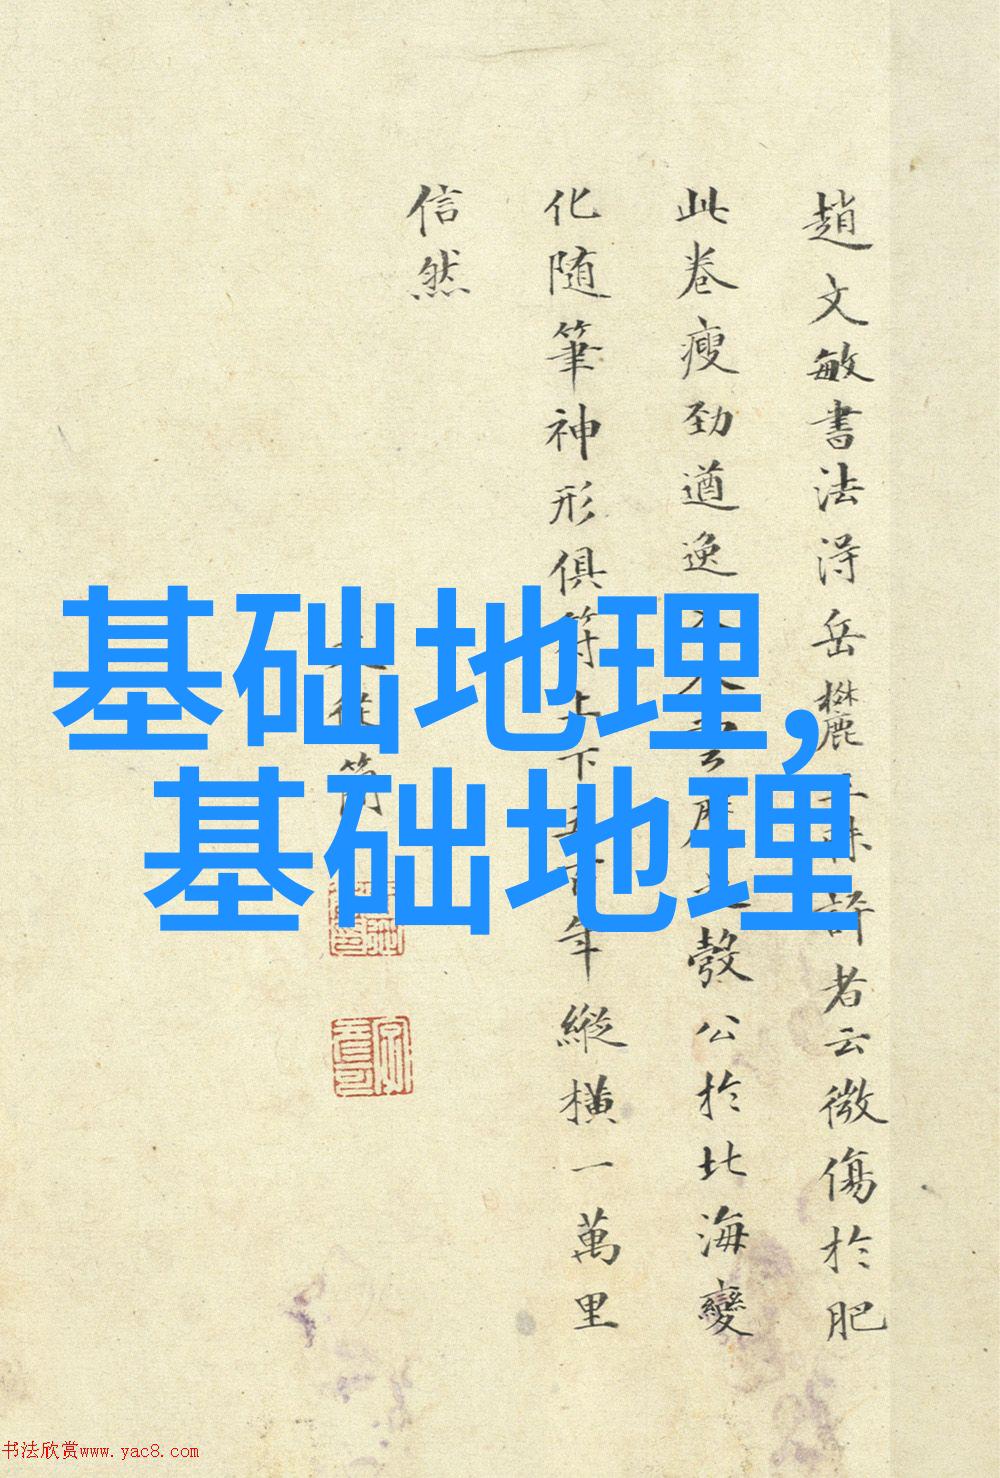 基础地理,
基础地理
趙文敏書法淂岳麓
許者云微傷於肥
此卷瘦劲遒逸
公於北海變
化随筆神形俱符上下五百年縱橫一萬里
信然
书法欣赏www.yac8.com